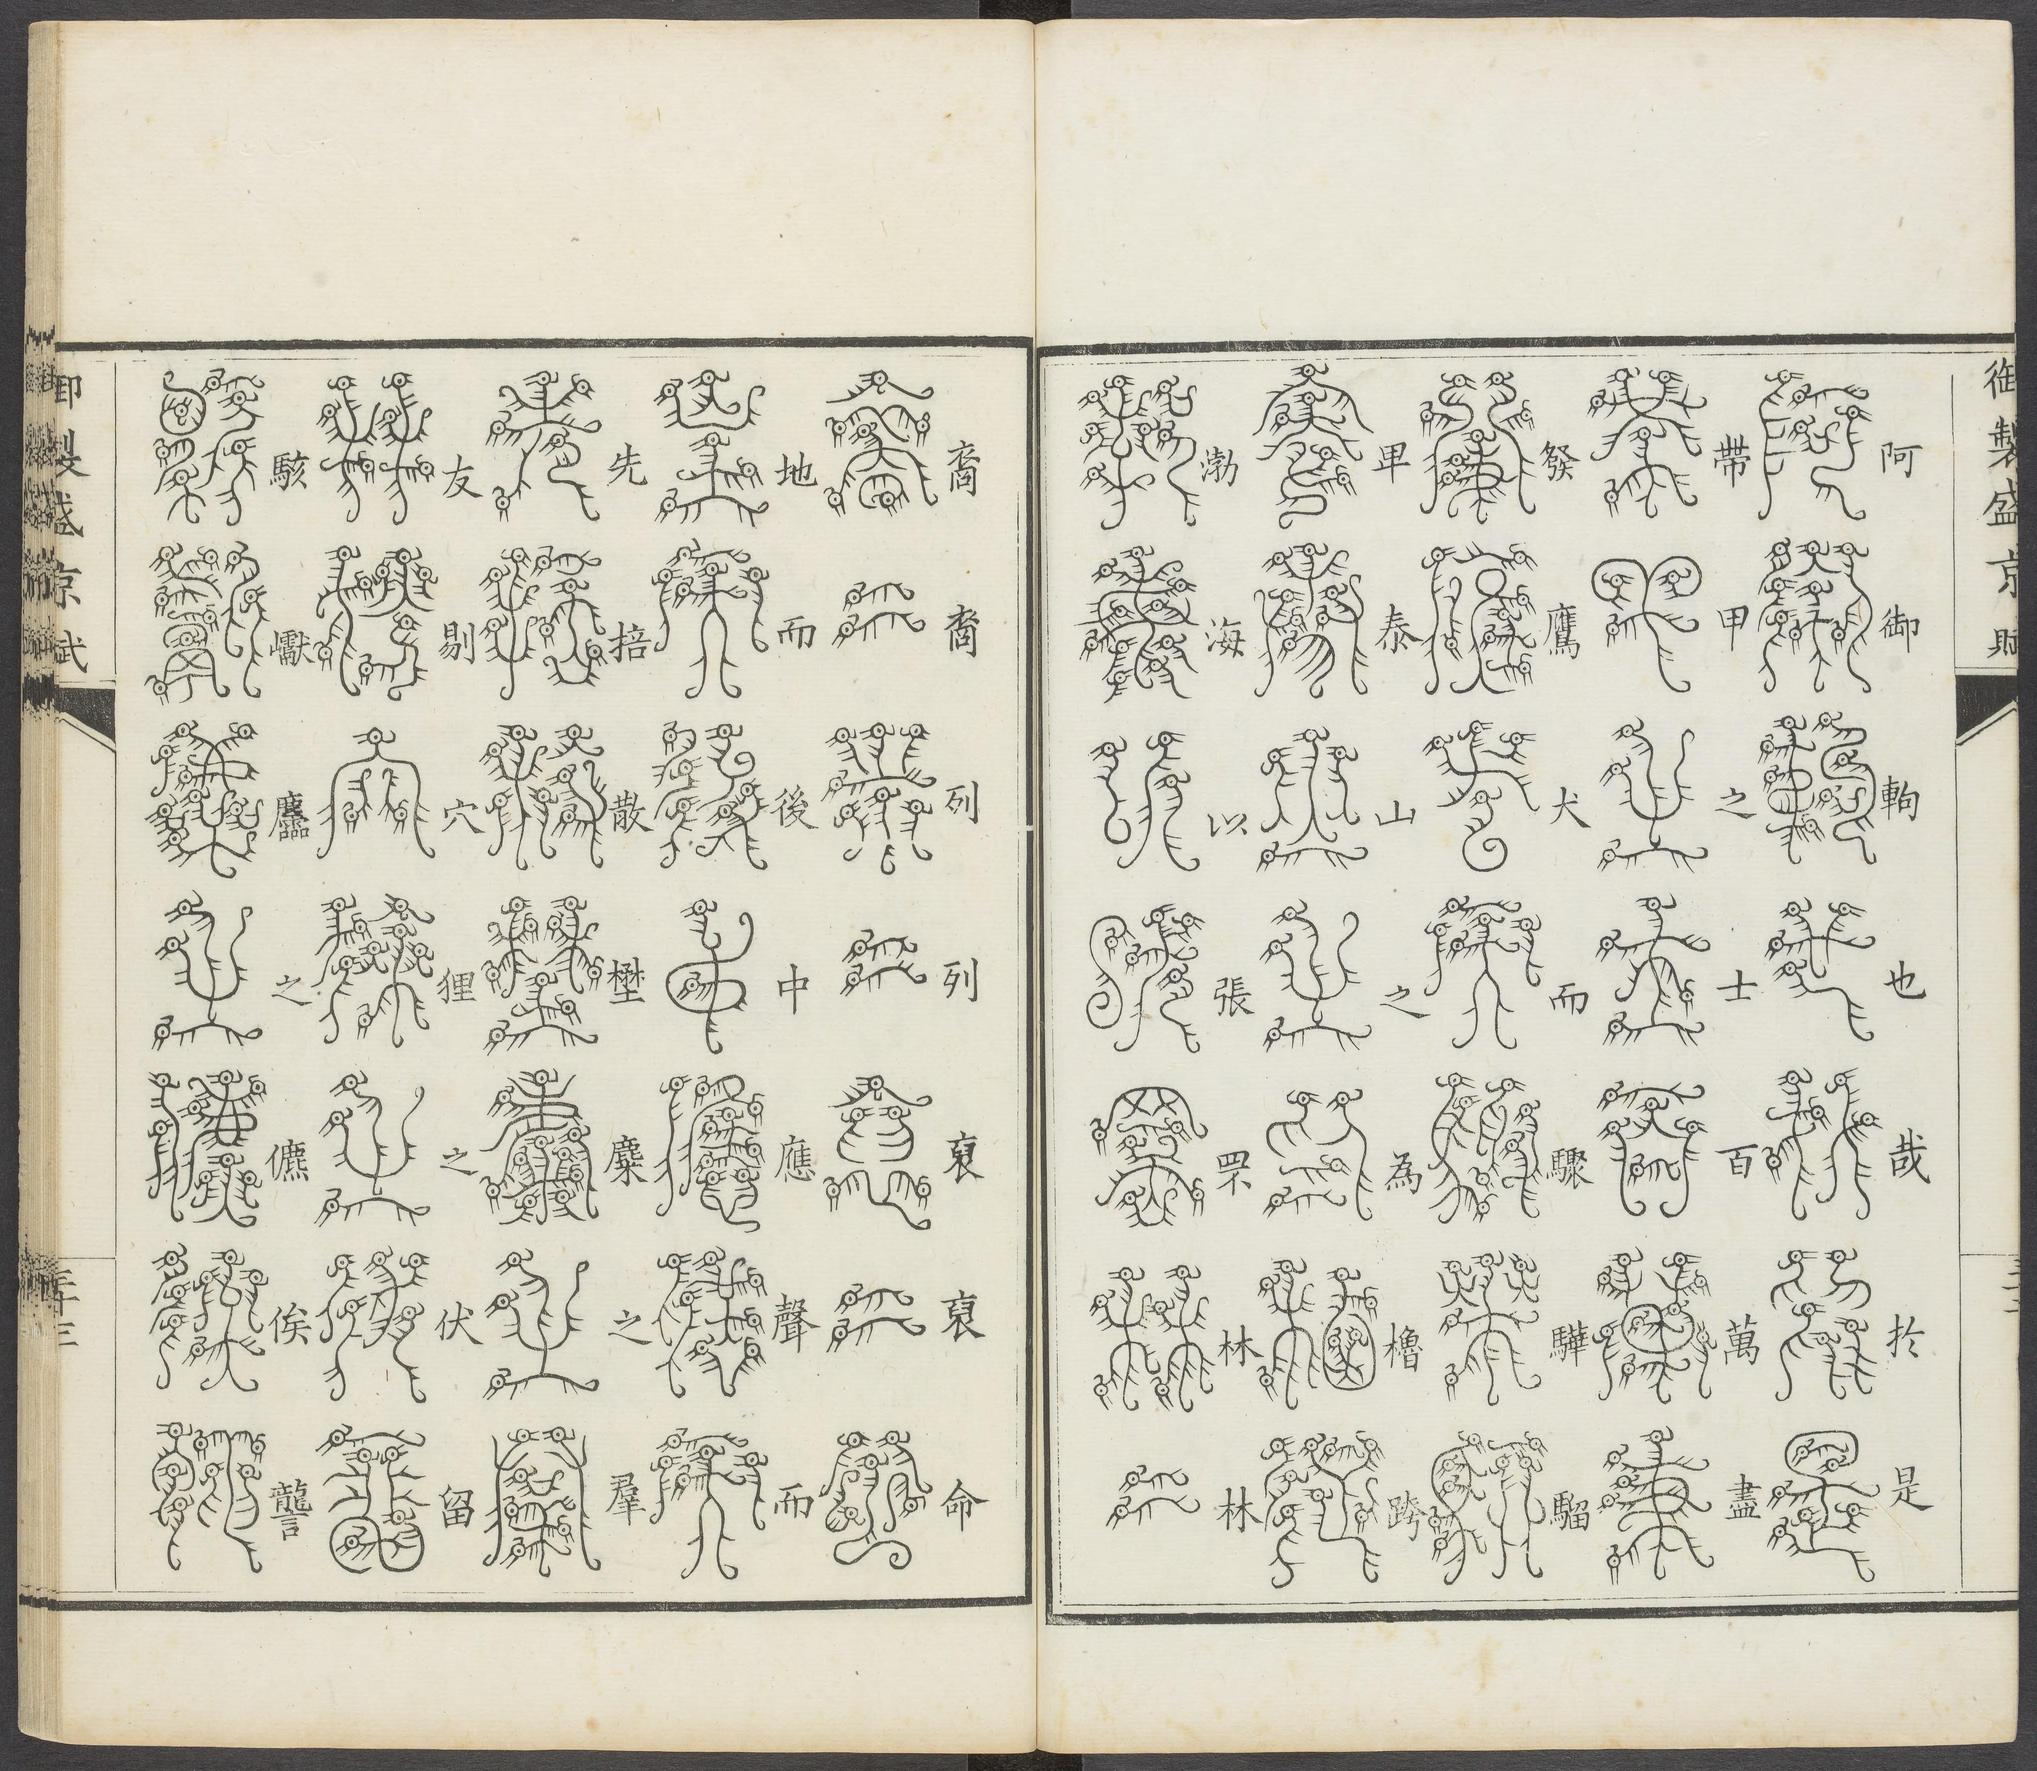 御製盛京賦
阿御軥也哉於是
帶甲之士百萬盡
發鷹犬而驟驊騮
卑泰山之為櫓跨
渤海以張罘林林
裔裔列列裒裒命
地而後中應聲而
先掊散壄麋之羣
友剔穴狸之伏留
駭巘麢之儦俟讋
御製盛京賦
三十三